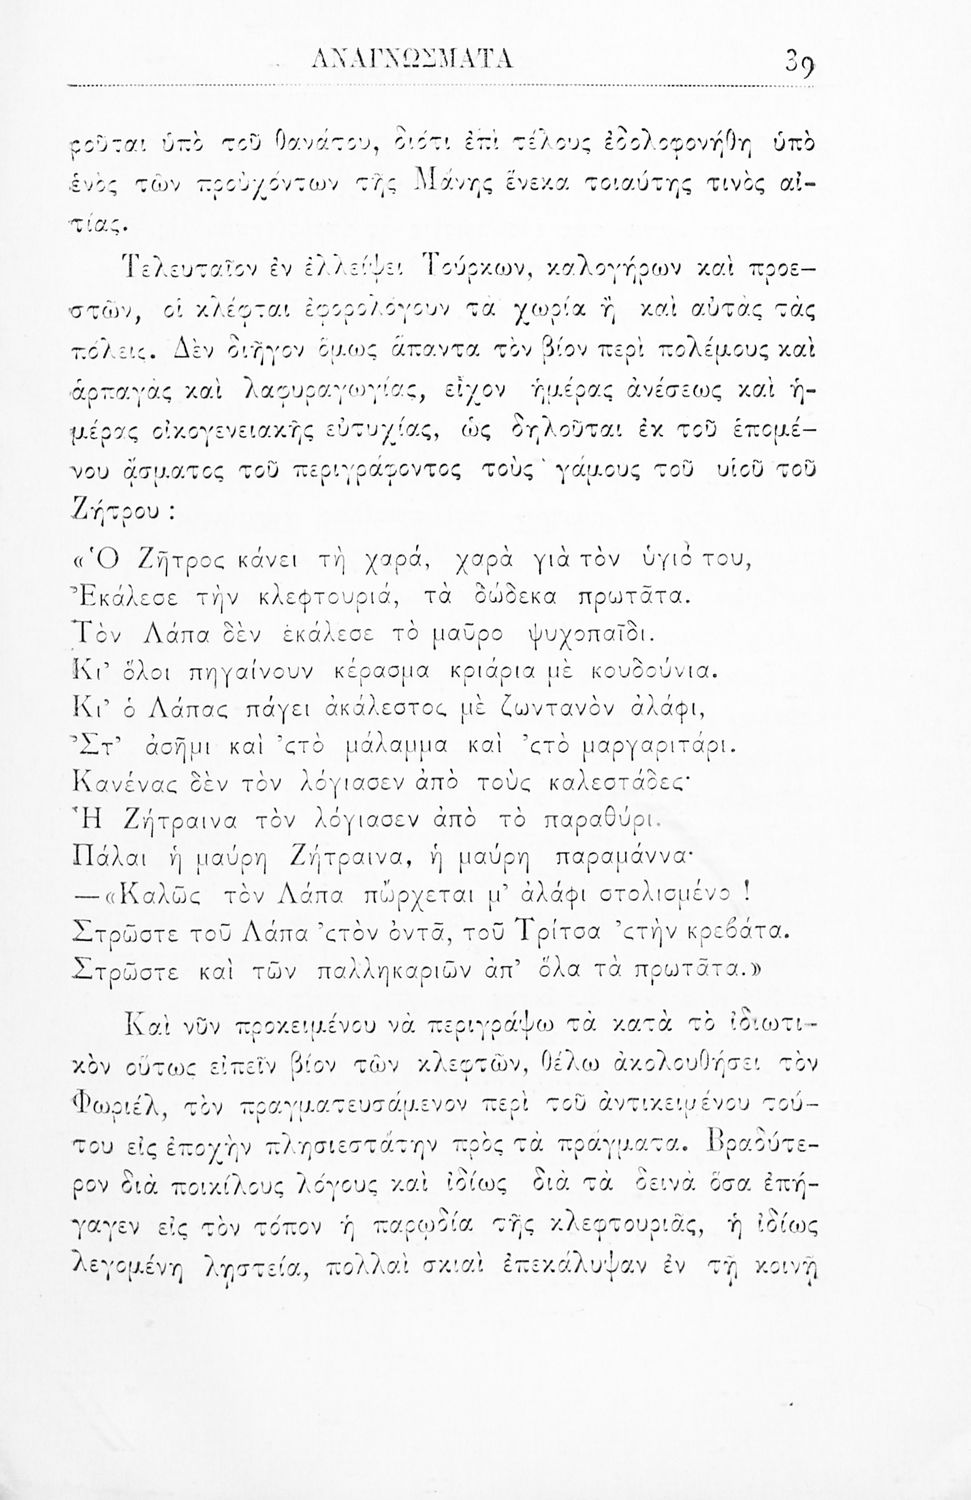 ΑΝΑΓΝΩΣΜΑΤΑ 39
ροῦται ὑπὸ τοῦ θανάτου, διότι ἐπὶ τέλους ἐδολοφονήθη ὑπὸ
ἑνὸς τῶν προὐχόντων τῆς Μάνης ἕνεκα τοιαύτης τινὸς αἰ-
τίας.
Τελευταῖον ἐν ἐλλείψει Τούρκων, καλογήρων καὶ προε-
στῶν, οἱ κλέφται ἐφορολόγουν τὰ χωρία ἢ καὶ αὐτὰς τὰς
πόλεις. Δὲν διῆγον ὅμως ἅπαντα τὸν βίον περὶ πολέμους καὶ
ἁρπαγὰς καὶ λαφυραγωγίας, εἶχον ἡμέρας ἀνέσεως καὶ ἡ-
μέρας οἰκογενειακῆς εὐτυχίας, ὡς δηλοῦται ἐκ τοῦ ἑπομέ-
νου ᾄσματος τοῦ περιγράφοντος τοὺς γάμους τοῦ υἱοῦ τοῦ
Ζήτρου :
«Ὁ Ζῆτρος κάνει τὴ χαρά, χαρὰ γιὰ τὸν ὑγιό του,
Ἐκάλεσε τὴν κλεφτουριά, τὰ δώδεκα πρωτᾶτα.
Τὸν Λάπα δὲν ἐκάλεσε τὸ μαῦρο ψυχοπαῖδι.
Κι’ ὅλοι πηγαίνουν κέρασμα κριάρια μὲ κουδούνια.
Κι’ ὁ Λάπας πάγει ἀκάλεστος μὲ ζωντανὸν ἀλάφι,
Ἐτ’ ἀσῆμι καὶ ’ςτὸ μάλαμμα καὶ ’ςτὸ μαργαριτάρι.
Κανένας δὲν τὸν λόγιασεν ἀπὸ τοὺς καλεστάδες·
Ἡ Ζήτραινα τὸν λόγιασεν ἀπὸ τὸ παραθύρι.
Πάλαι ἡ μαύρη Ζήτραινα, ἡ μαύρη παραμάννα·
—«Καλῶς τὸν Λάπα πὤρχεται μ’ ἀλάφι στολισμένο !
Στρῶστε τοῦ Λάπα ’ςτὸν ὀντᾶ, τοῦ Τρίτσα ’ςτὴν κρεβάτα.
Στρῶστε καὶ τῶν παλληκαριῶν ἀπ’ ὅλα τὰ πρωτᾶτα.»
Καὶ νῦν προκειμένου νὰ περιγράψω τὰ κατὰ τὸ ἰδιωτι-
κὸν οὕτως εἰπεῖν βίον τῶν κλεφτῶν, θέλω ἀκολουθήσει τὸν
Φωριέλ, τὸν πραγματευσάμενον περὶ τοῦ ἀντικειμένου τού-
του εἰς ἐποχὴν πλησιεστάτην πρὸς τὰ πράγματα. Βραδύτε-
ρον διὰ ποικίλους λόγους καὶ ἰδίως διὰ τὰ δεινὰ ὅσα ἐπή-
γαγεν εἰς τὸν τόπον ἡ παρῳδία τῆς κλεφτουριᾶς, ἡ ἰδίως
λεγομένη λῃστεία, πολλαὶ σκιαὶ ἐπεκάλυψαν ἐν τῇ κοινῇ